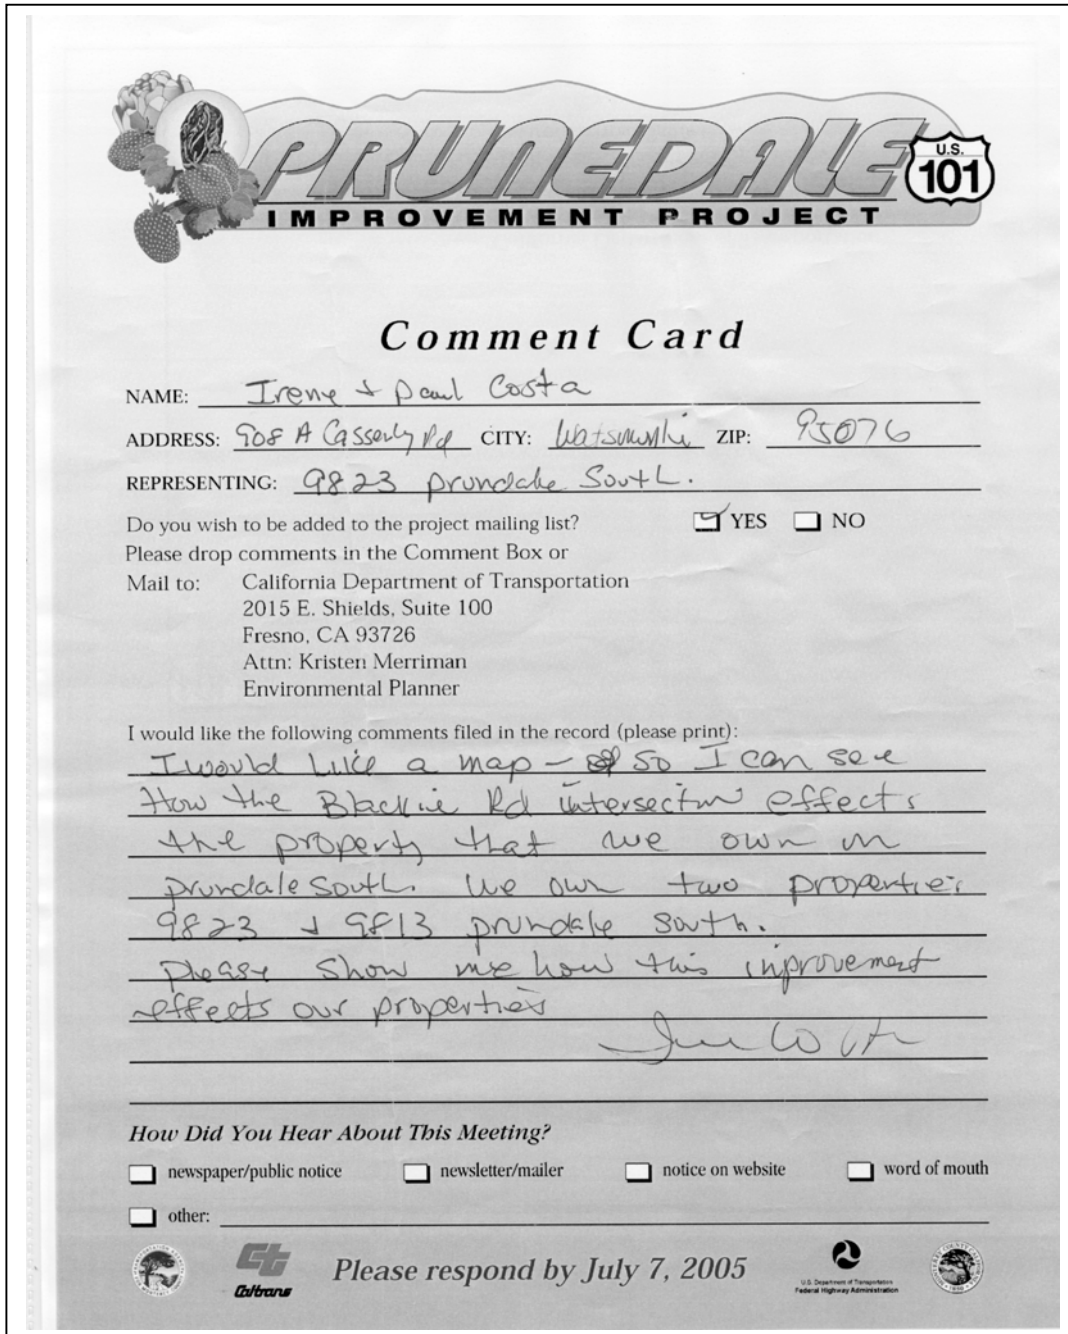 PRUNEDALE
U.S.
101
IMPROVEMENT PROJECT
Comment Card
NAME: Irene + Paul Costa
ADDRESS: 908 A Casserly Rd CITY: Watsonville ZIP: 95076
REPRESENTING: 9823 prundale South.
Do you wish to be added to the project mailing list? YES NO
Please drop comments in the Comment Box or
Mail to: California Department of Transportation
2015 E. Shields, Suite 100
Fresno, CA 93726
Attn: Kristen Merriman
Environmental Planner
I would like the following comments filed in the record (please print):
I would like a map - so I can see
How the Blackie Rd intersection effects
the property that we own on
prundale South. We own two properties
9823 + 9813 prundale South.
Please Show me how this inprovement
effects our properties
How Did You Hear About This Meeting?
newspaper/public notice newsletter/mailer notice on website word of mouth
other:
Caltrans
Please respond by July 7, 2005
U.S. Department of Transportation
Federal Highway Administration